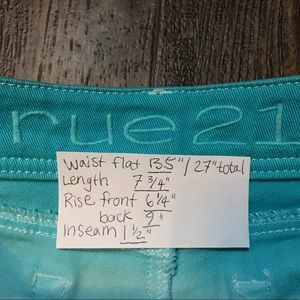 rue21
Waist flat 13.5"/27" total
Length 7 3/4"
Rise front 6 1/4"
back 9"
Inseam 1 1/2"